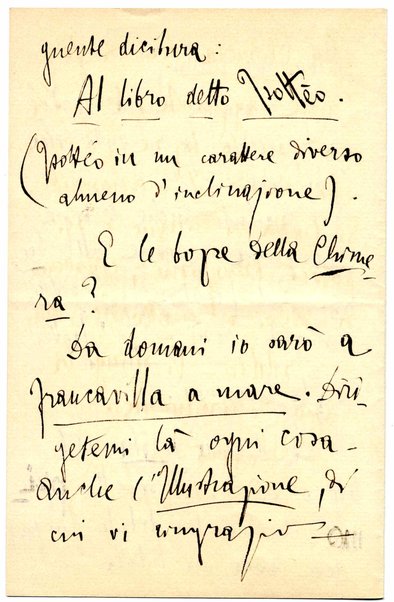 guente dicitura:
Al libro detto Isottèo.
(Isottèo in un carattere diverso
almeno d'inclinazione).
E le bozze della Chime-
ra?
Da domani io sarò a
Francavilla a mare. Diri-
getemi là ogni cosa -
anche l'Illustrazione, di
cui vi ringrazio -